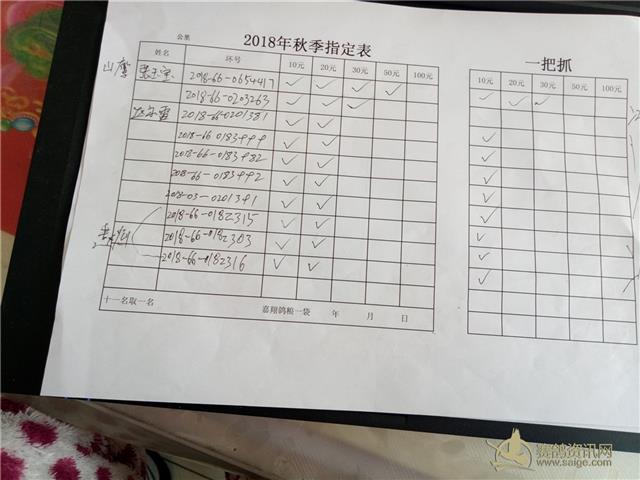 公里 2018年秋季指定表 一把抓
姓名 环号 10元 20元 30元 50元 100元 10元 20元 30元 50元 100元
山鹰 2018-66-0654417
2018-66-0203263
2018-66-0201381
2018-66 0183444
2018-66-0183482
2018-66-0183442
2018-03-0201341
2018-66-0182315
2018-66-0182303
2018-66-0182316
十一名取一名 嘉翔鸽粮一袋 年 月 日
赛鸽资讯网
www.saige.com